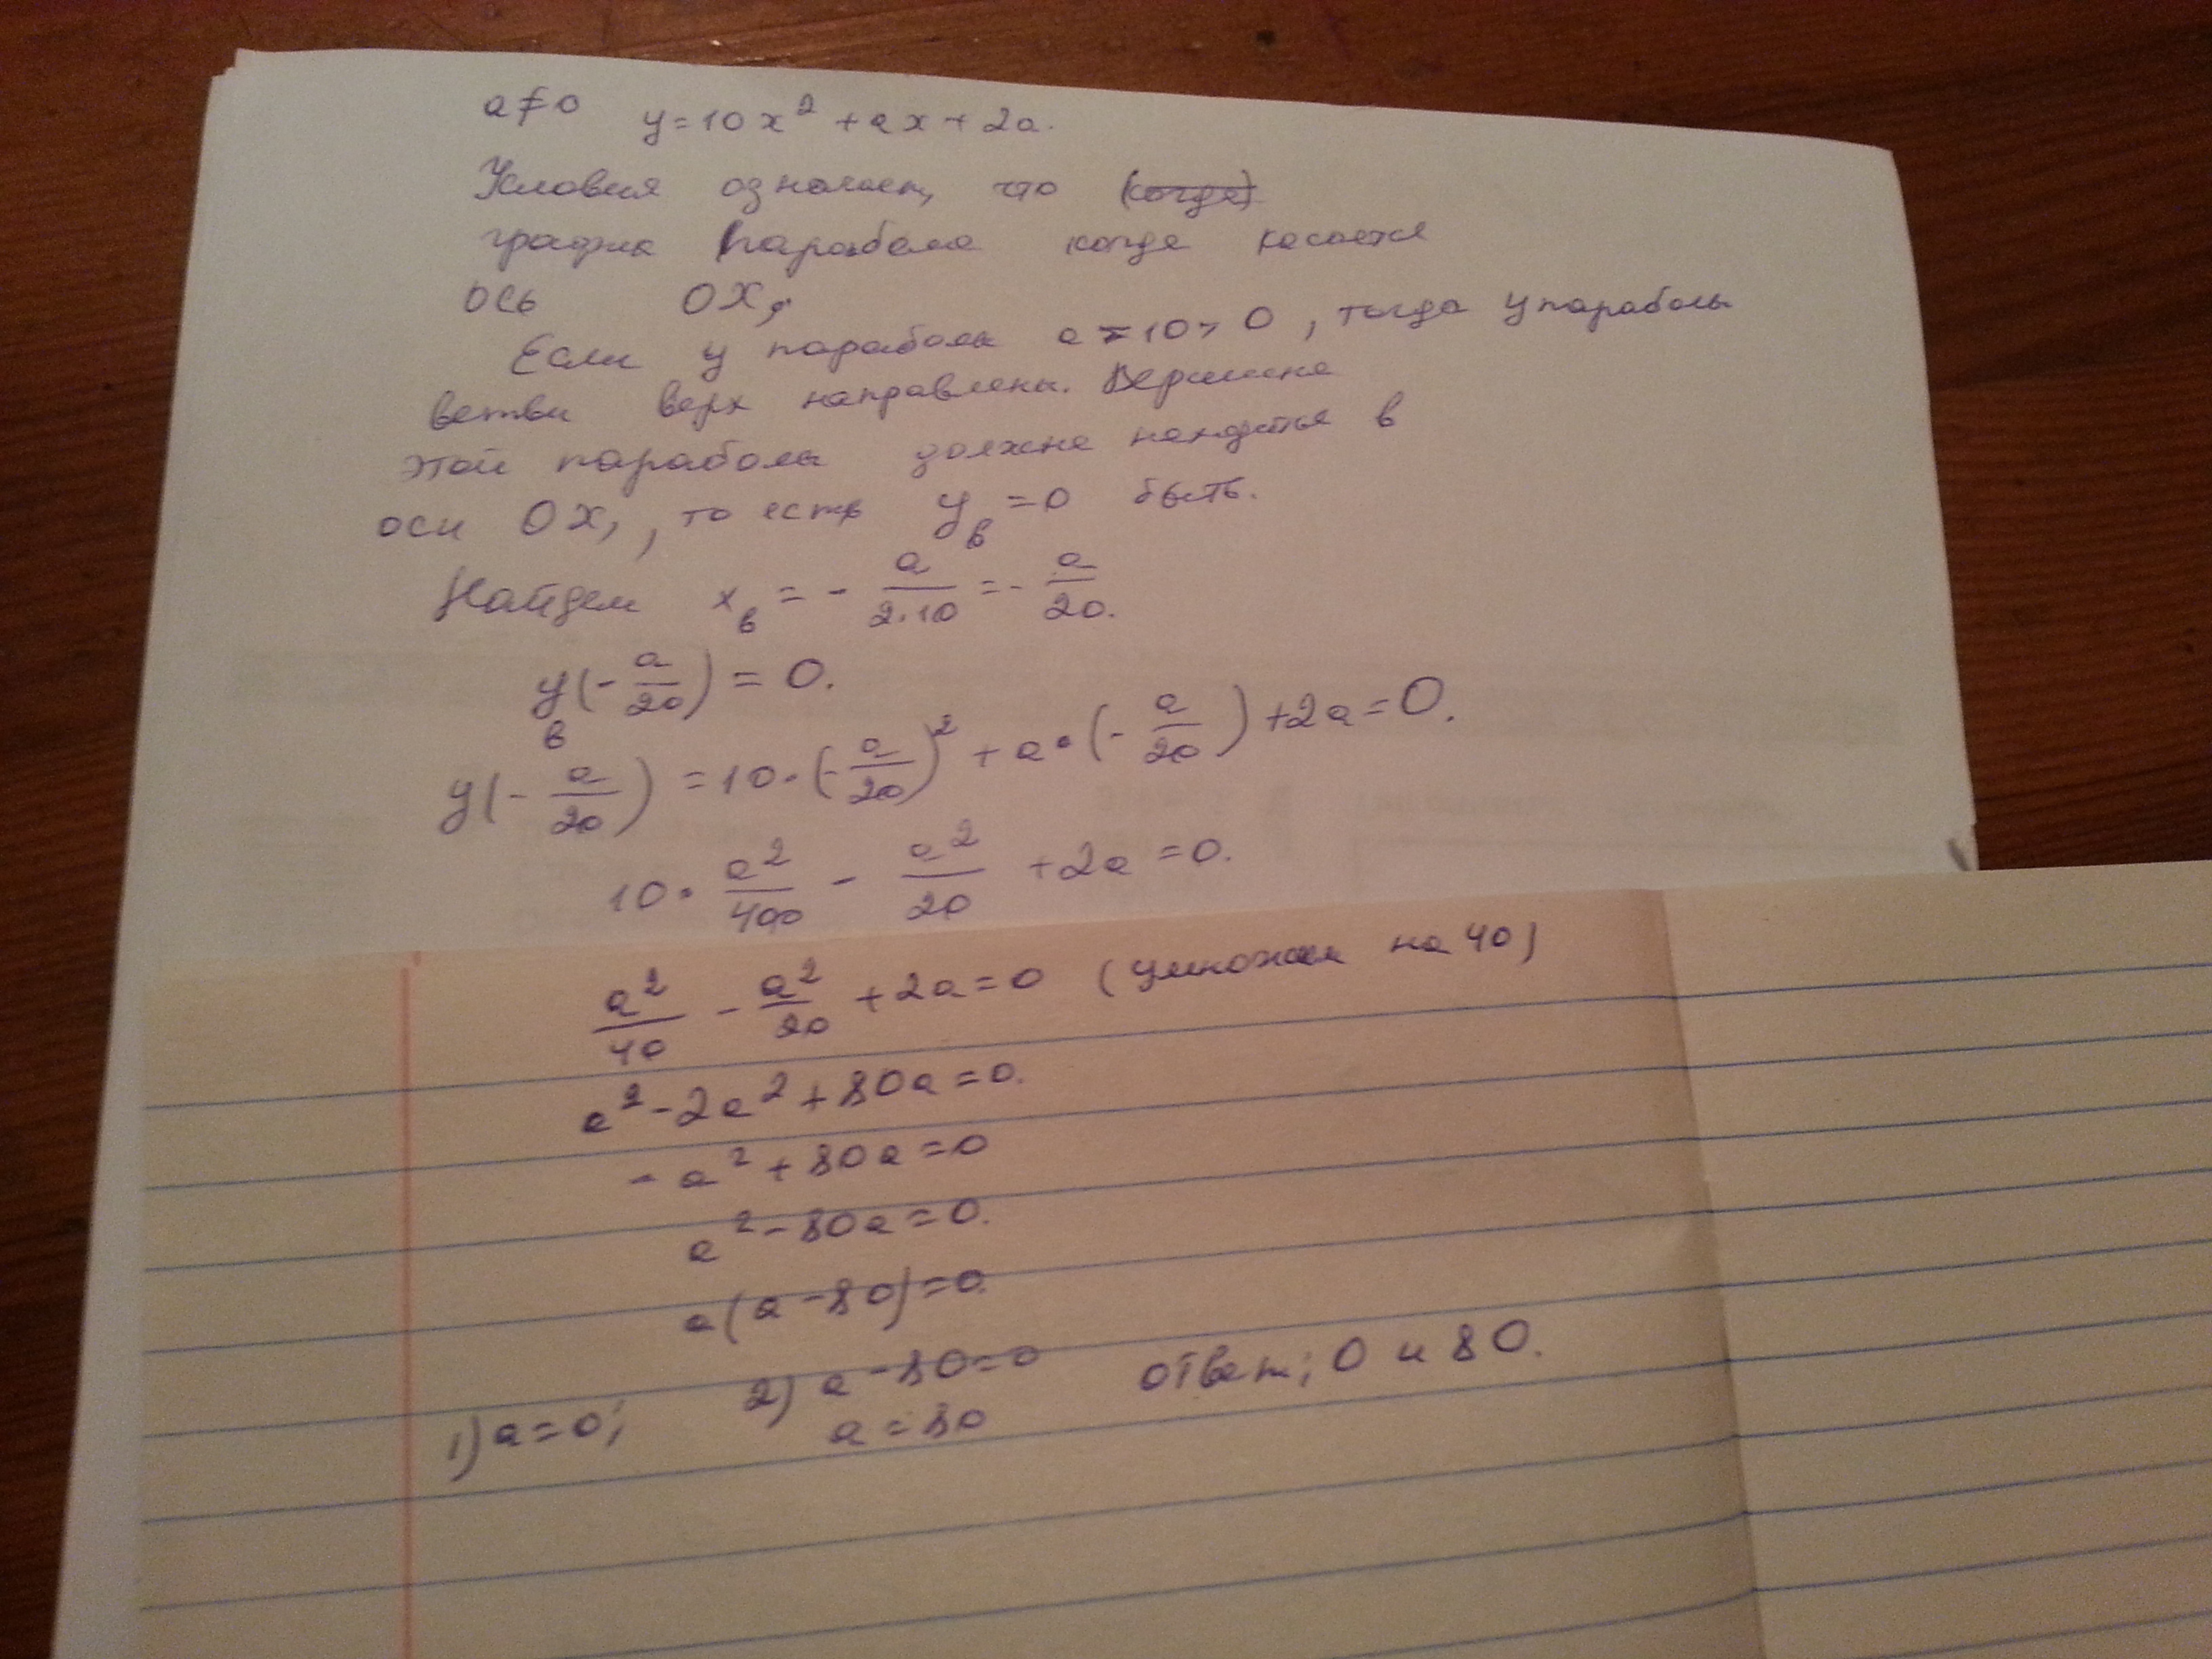 a≠0 y=10x²+ax+2a.
Условия означает, что (когда)
график парабола когда касается
ось OX,
Если у парабола a=10>0, тогда у параболы
ветви верх направлены. Вершина
этой параболы должна находиться в
оси OX, , то есть y_в=0 быть.
Найдем x_в = - a/(2·10) = - a/20.
y_в(-a/20) = 0.
y(-a/20) = 10·(-a/20)² + a·(-a/20) + 2a = 0.
10· a²/400 - a²/20 + 2a = 0.
a²/40 - a²/20 + 2a = 0 (умножаем на 40)
a² - 2a² + 80a = 0.
- a² + 80a = 0
a² - 80a = 0.
a(a - 80) = 0.
1) a = 0; 2) a - 80 = 0 ответ; 0 и 80.
a = 80